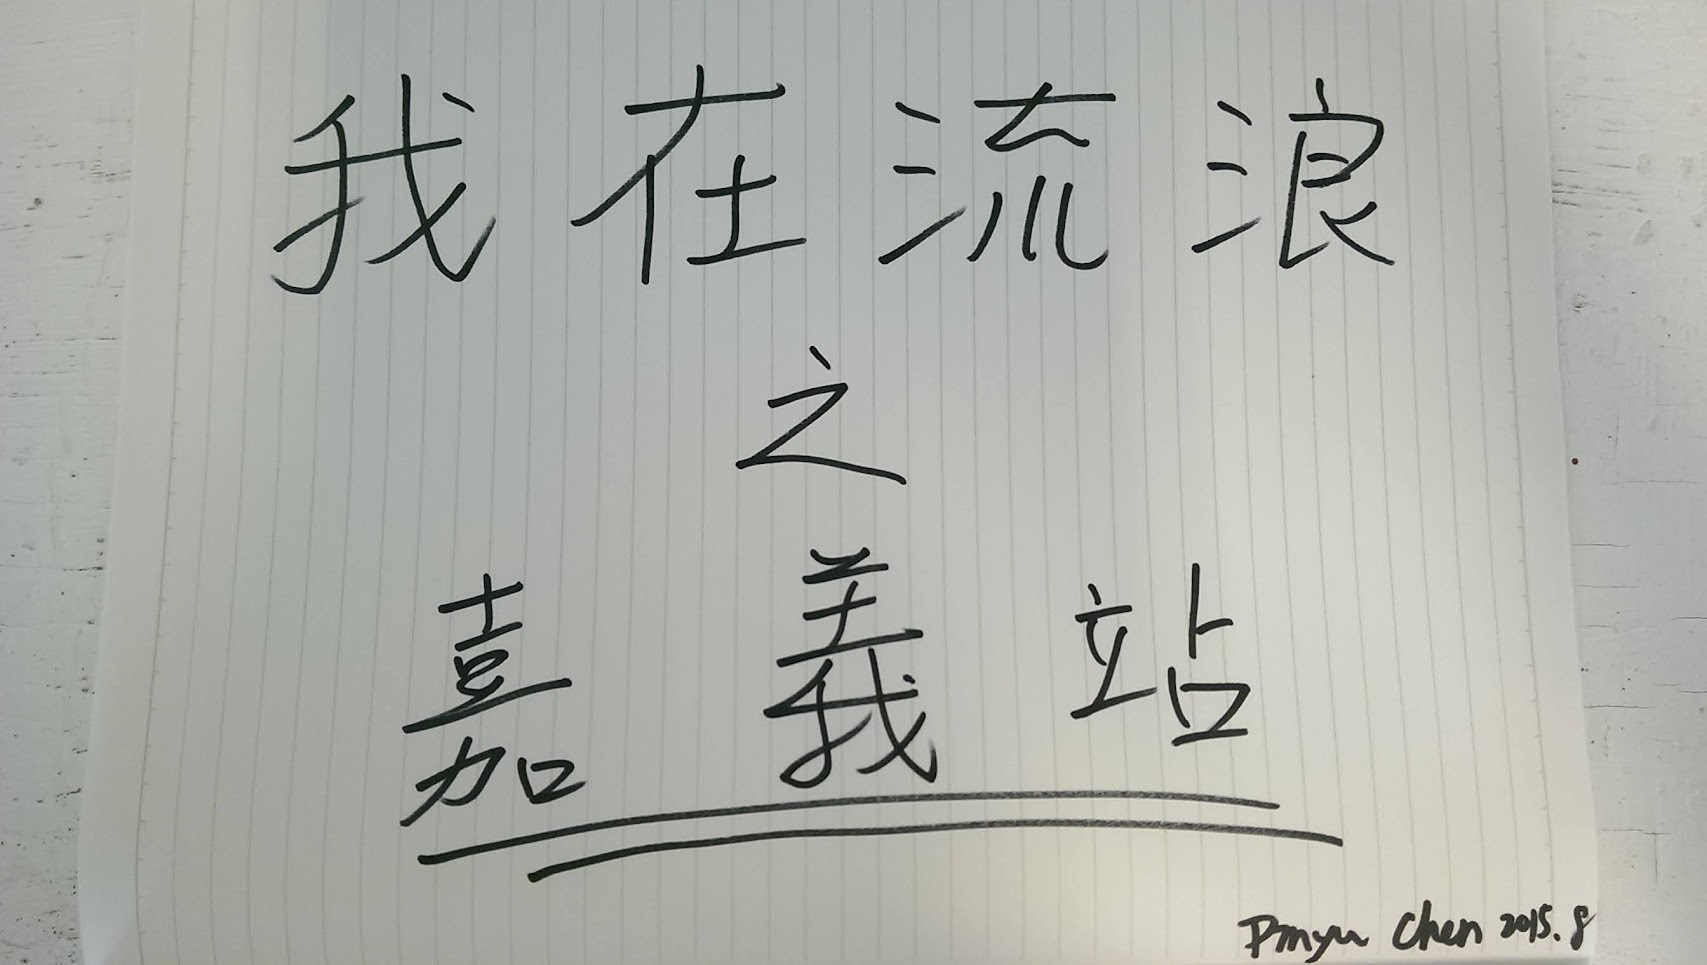 我在流浪
之
嘉義站
Chen 2015.8